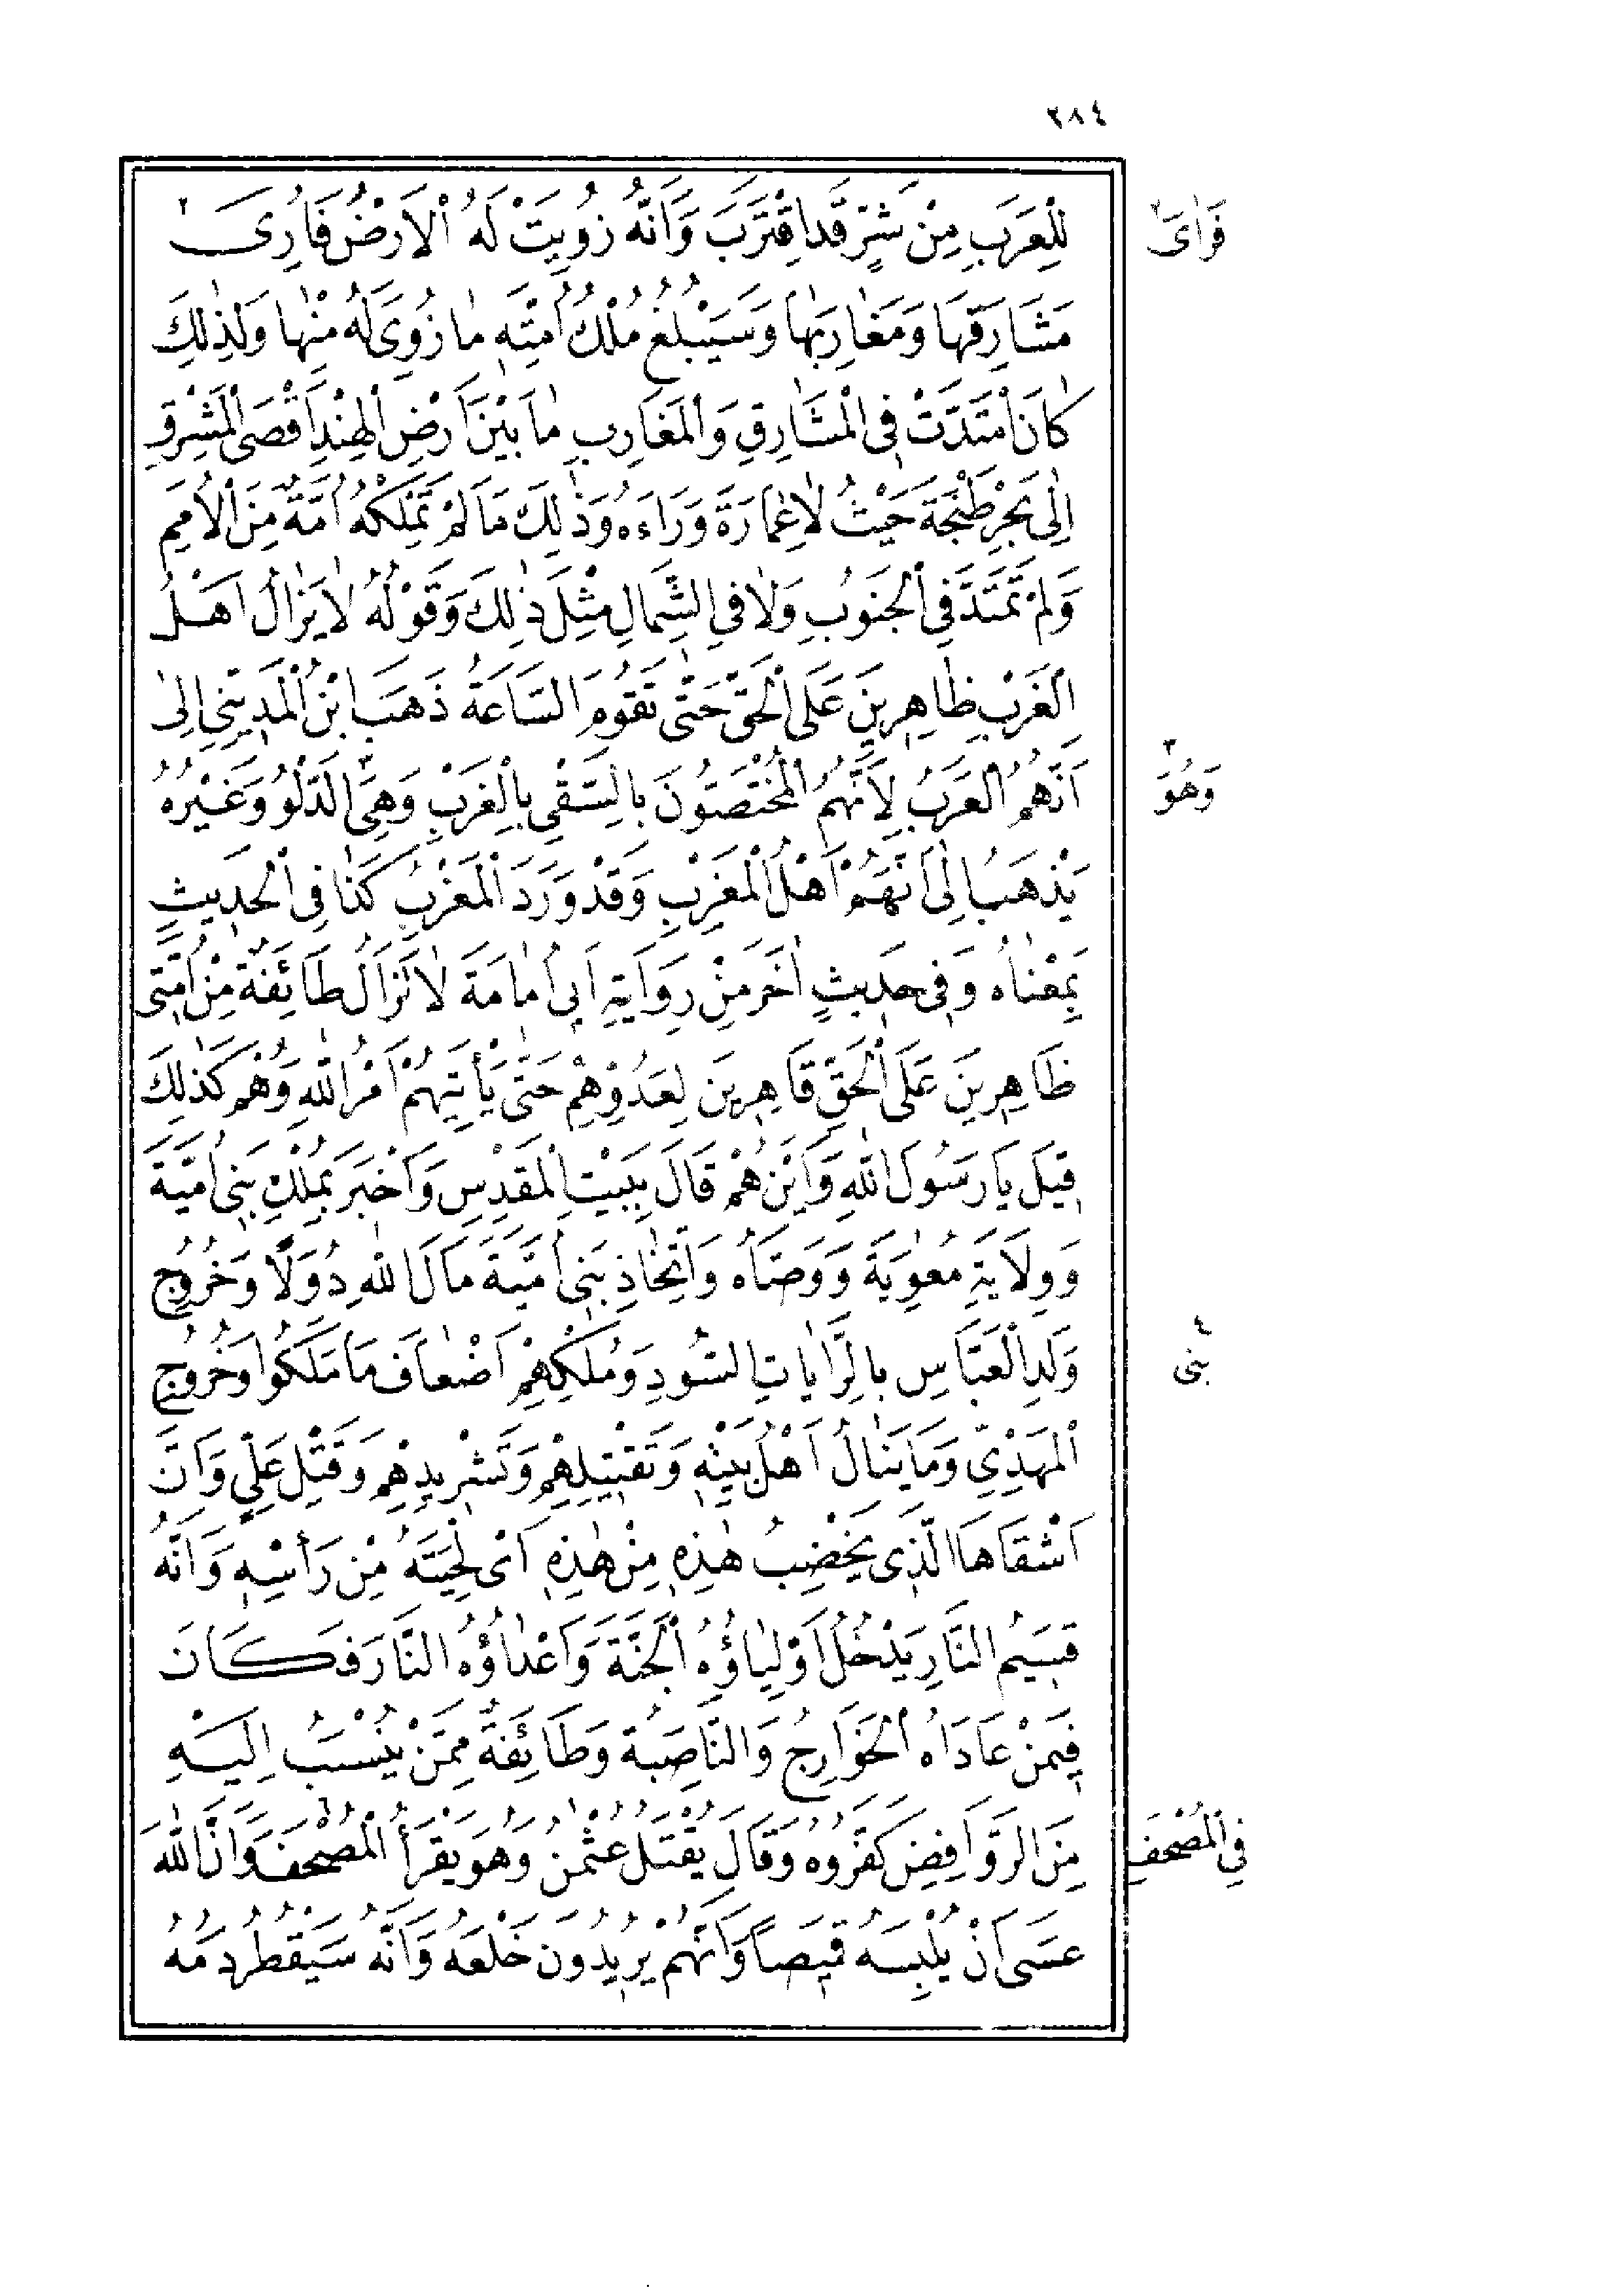 ٢٨٤
لِلْعَرَبِ مِنْ شَرٍّ قَدِ اقْتَرَبَ وَاَنَّهُ زُوِيَتْ لَهُ الْاَرْضُ فَاُرِىَ ٢
فَرَاٰىَ ٢
مَشَارِقَهَا وَمَغَارِبَهَا وَسَيَبْلُغُ مُلْكُ اُمَّتِهِ مَا زُوِىَ لَهُ مِنْهَا وَلِذٰلِكَ
كَانَ امْتَدَّتْ فِى الْمَشَارِقِ وَالْمَغَارِبِ مَا بَيْنَ اَرْضِ الْهِنْدِ اَقْصَى الْمَشْرِقِ
اِلٰى بَحْرِ طَنْجَةَ حَيْثُ لَا عِمَارَةَ وَرَاءَهُ وَذٰلِكَ مَا لَمْ تَمْلِكْهُ اُمَّةٌ مِنَ الْاُمَمِ
وَلَمْ تَمْتَدَّ فِى الْجَنُوبِ وَلَا فِى الشِّمَالِ مِثْلَ ذٰلِكَ وَقَوْلُهُ لَا يَزَالُ اَهْلُ
الْغَرْبِ ظَاهِرِينَ عَلَى الْحَقِّ حَتّٰى تَقُومَ السَّاعَةُ ذَهَبَ ابْنُ الْمَدِينِىِّ اِلٰى
اَنَّهُمُ الْعَرَبُ لِاَنَّهُمُ الْمُخْتَصُّونَ بِالسَّقْىِ بِالْغَرْبِ وَهِىَ ٣ الدَّلْوُ وَغَيْرُهُ
وَهُوَ ٣
يَذْهَبُ اِلٰى اَنَّهُمْ اَهْلُ الْمَغْرِبِ وَقَدْ وَرَدَ الْمَغْرِبُ كَذَا فِى الْحَدِيثِ
بِمَعْنَاهُ وَفِى حَدِيثٍ اٰخَرَ مِنْ رِوَايَةِ اَبِى اُمَامَةَ لَا تَزَالُ طَائِفَةٌ مِنْ اُمَّتِى
ظَاهِرِينَ عَلَى الْحَقِّ قَاهِرِينَ لِعَدُوِّهِمْ حَتّٰى يَأْتِيَهُمْ اَمْرُ اللّٰهِ وَهُمْ كَذٰلِكَ
قِيلَ يَا رَسُولَ اللّٰهِ وَاَيْنَ هُمْ قَالَ بِبَيْتِ الْمَقْدِسِ وَاَخْبَرَ بِمُلْكِ بَنِى اُمَيَّةَ
وَوِلَايَةِ مُعٰوِيَةَ وَوَصَّاهُ وَاتِّخَاذِ بَنِى اُمَيَّةَ مَالَ اللّٰهِ دُوَلًا وَخُرُوجِ
وَلَدِ الْعَبَّاسِ بِالرَّايَاتِ السُّودِ وَمُلْكِهِمْ اَضْعَافَ مَا مَلَكُوا وَخُرُوجِ
بَنِى ٤
الْمَهْدِىِّ وَمَا يَنَالُ اَهْلُ بَيْتِهِ وَتَقْتِيلِهِمْ وَتَشْرِيدِهِمْ وَقَتْلِ عَلِىٍّ وَاَنَّ
اَشْقَاهَا الَّذِى يَخْضِبُ هٰذِهِ مِنْ هٰذِهِ اَىْ لِحْيَتَهُ مِنْ رَأْسِهِ وَاَنَّهُ
قَسِيمُ النَّارِ يَدْخُلُ اَوْلِيَاؤُهُ الْجَنَّةَ وَاَعْدَاؤُهُ النَّارَ فَكَانَ
فِيمَنْ عَادَاهُ الْخَوَارِجُ وَالنَّاصِبَةُ وَطَائِفَةٌ مِمَّنْ يُنْسَبُ اِلَيْهِ
مِنَ الرَّوَافِضِ كَفَّرُوهُ وَقَالَ يُقْتَلُ عُثْمٰنُ وَهُوَ يَقْرَأُ الْمُصْحَفَ ٦ وَاَنَّ اللّٰهَ
فِى الْمُصْحَفِ
عَسَى اَنْ يُلْبِسَهُ قَمِيصًا وَاَنَّهُمْ يُرِيدُونَ خَلْعَهُ وَاَنَّهُ سَيَقْطُرُ دَمُهُ